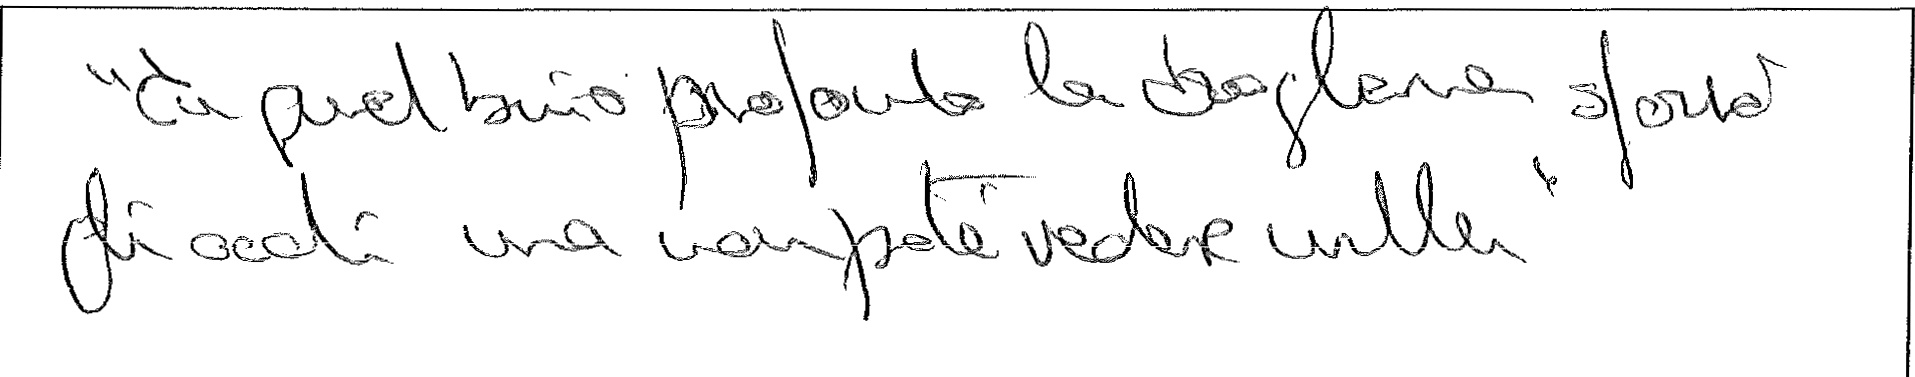 "In quel buio profondo la sbaglena sforzò
gli occhi ma non poté vedere nulla"